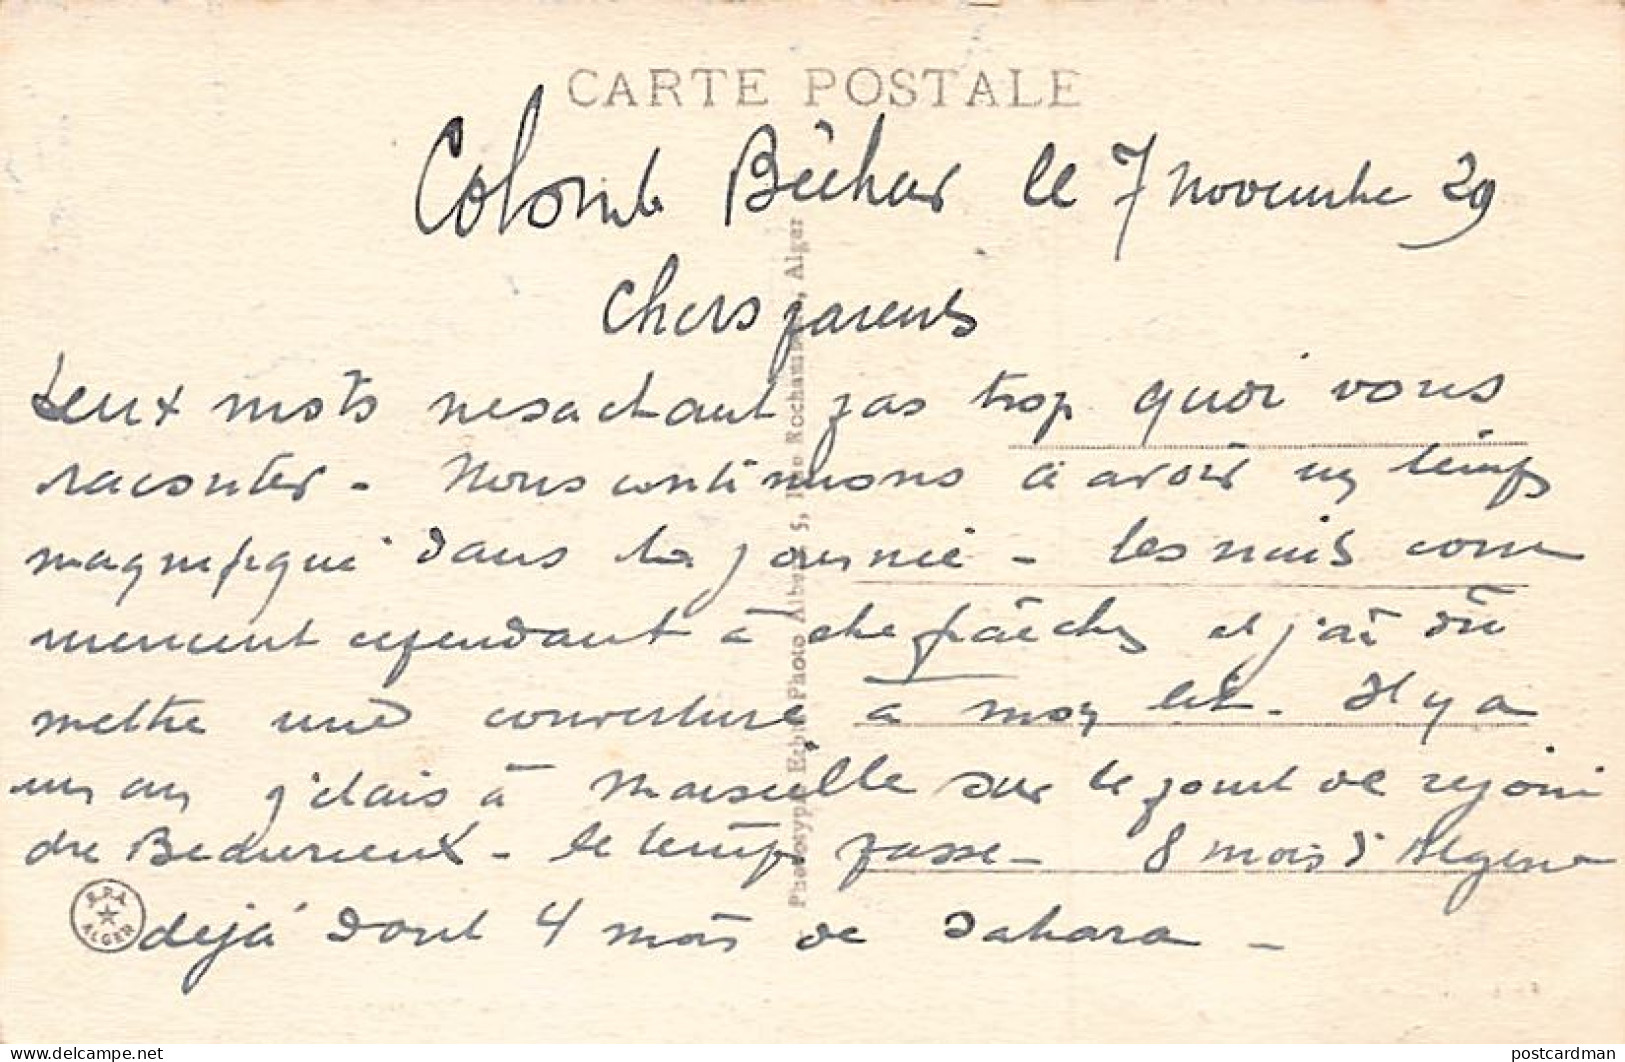 CARTE POSTALE
Colomb Béchar le 7 novembre 29
Chers parents
Deux mots ne sachant pas trop quoi vous
raconter - Nous continuons à avoir un temps
magnifique dans la journée - les nuits com
mencent cependant à être fraîches et j'ai dû
mettre une couverture à mon lit. Il y a
un an j'étais à Marseille sur le point de rejoin
dre - le temps passe - 8 mois d'Algérie
déjà dont 4 mois de Sahara -
E.P.A. ALGER
Phototypie Echt Photo Albert 5, Rue Alger
delcampe.net
postcardman